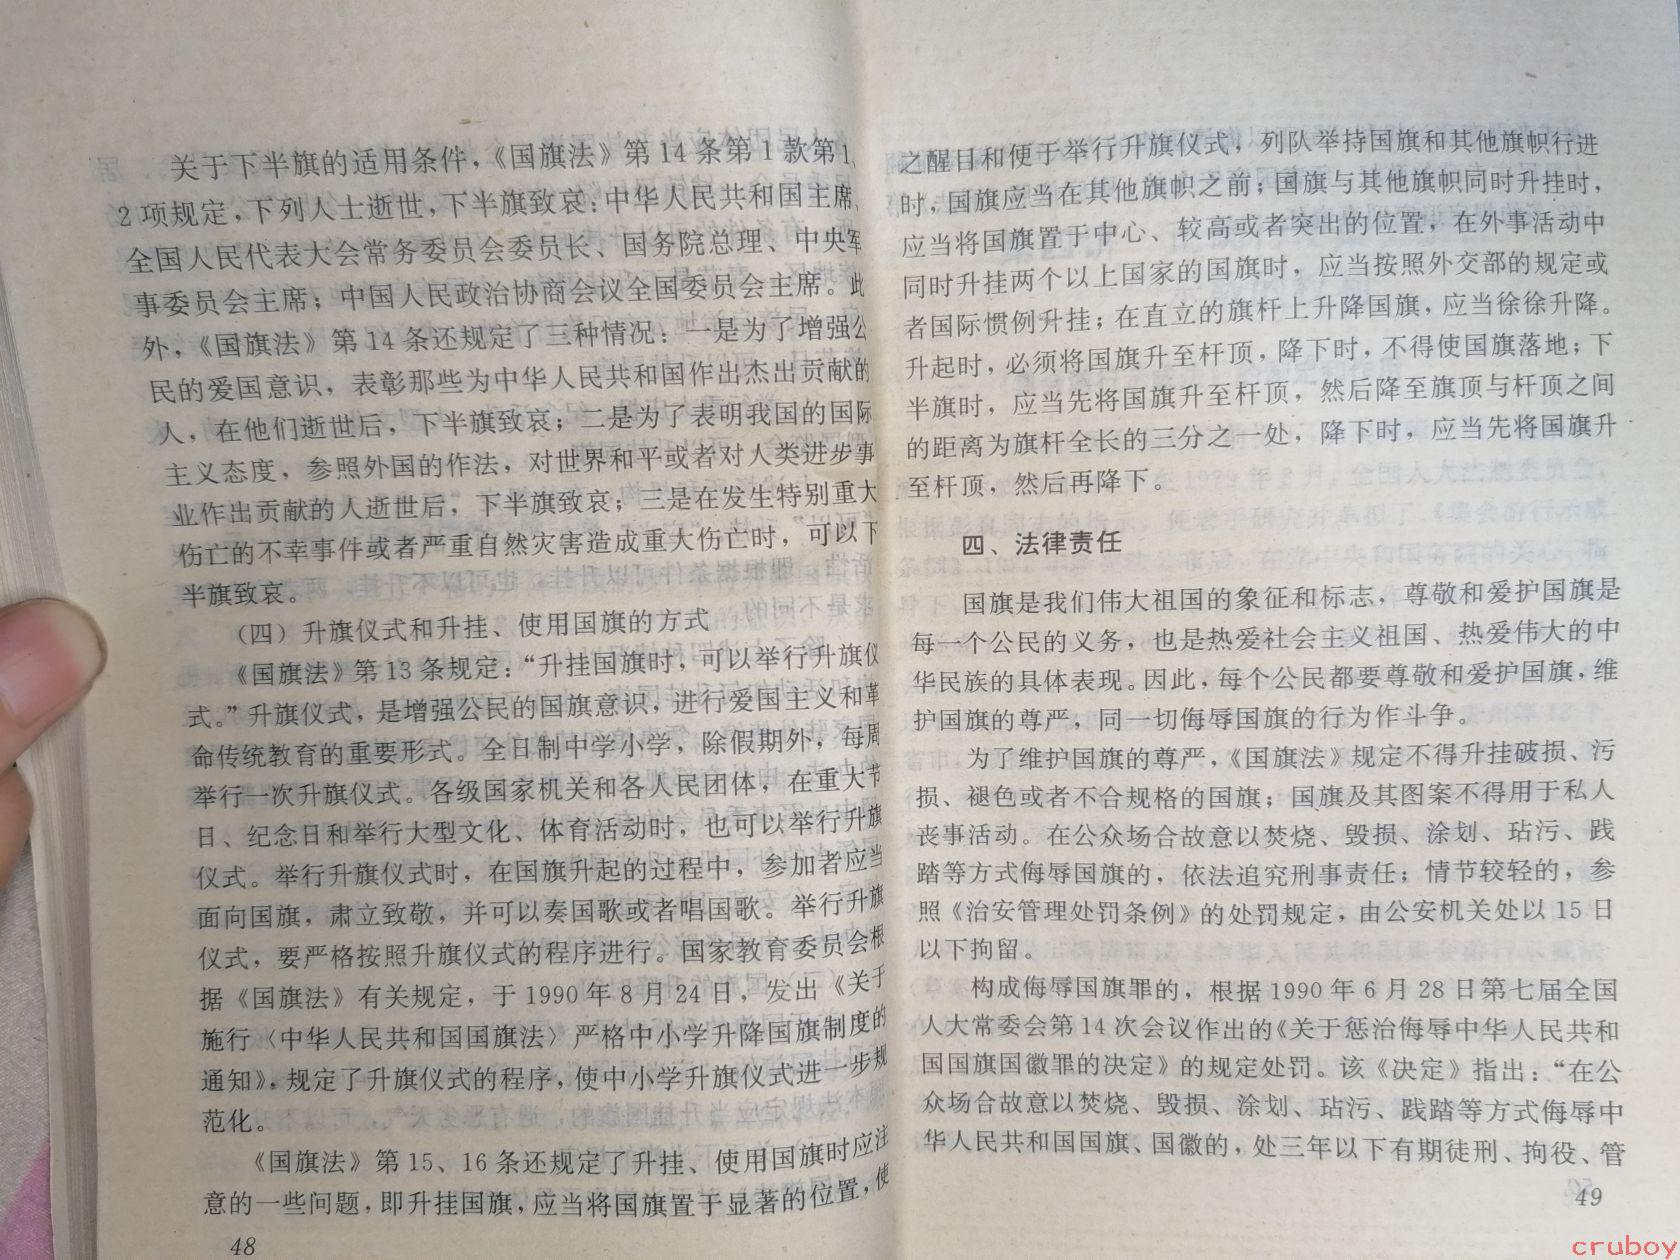 关于下半旗的适用条件，《国旗法》第14条第1款第1、
2项规定，下列人士逝世，下半旗致哀：中华人民共和国主席、
全国人民代表大会常务委员会委员长、国务院总理、中央军
事委员会主席；中国人民政治协商会议全国委员会主席。此
外，《国旗法》第14条还规定了三种情况：一是为了增强公
民的爱国意识，表彰那些为中华人民共和国作出杰出贡献的
人，在他们逝世后，下半旗致哀；二是为了表明我国的国际
主义态度，参照外国的作法，对世界和平或者对人类进步事
业作出贡献的人逝世后，下半旗致哀；三是在发生特别重大
伤亡的不幸事件或者严重自然灾害造成重大伤亡时，可以下
半旗致哀。
（四）升旗仪式和升挂、使用国旗的方式
《国旗法》第13条规定：“升挂国旗时，可以举行升旗仪
式。”升旗仪式，是增强公民的国旗意识，进行爱国主义和革
命传统教育的重要形式。全日制中学小学，除假期外，每周
举行一次升旗仪式。各级国家机关和各人民团体，在重大节
日、纪念日和举行大型文化、体育活动时，也可以举行升旗
仪式。举行升旗仪式时，在国旗升起的过程中，参加者应当
面向国旗，肃立致敬，并可以奏国歌或者唱国歌。举行升旗
仪式，要严格按照升旗仪式的程序进行。国家教育委员会根
据《国旗法》有关规定，于1990年8月24日，发出《关于
施行〈中华人民共和国国旗法〉严格中小学升降国旗制度的
通知》，规定了升旗仪式的程序，使中小学升旗仪式进一步规
范化。
《国旗法》第15、16条还规定了升挂、使用国旗时应注
意的一些问题，即升挂国旗，应当将国旗置于显著的位置，使
48
之醒目和便于举行升旗仪式，列队举持国旗和其他旗帜行进
时，国旗应当在其他旗帜之前；国旗与其他旗帜同时升挂时，
应当将国旗置于中心、较高或者突出的位置，在外事活动中
同时升挂两个以上国家的国旗时，应当按照外交部的规定或
者国际惯例升挂；在直立的旗杆上升降国旗，应当徐徐升降。
升起时，必须将国旗升至杆顶，降下时，不得使国旗落地；下
半旗时，应当先将国旗升至杆顶，然后降至旗顶与杆顶之间
的距离为旗杆全长的三分之一处，降下时，应当先将国旗升
至杆顶，然后再降下。
四、法律责任
国旗是我们伟大祖国的象征和标志，尊敬和爱护国旗是
每一个公民的义务，也是热爱社会主义祖国、热爱伟大的中
华民族的具体表现。因此，每个公民都要尊敬和爱护国旗，维
护国旗的尊严，同一切侮辱国旗的行为作斗争。
为了维护国旗的尊严，《国旗法》规定不得升挂破损、污
损、褪色或者不合规格的国旗；国旗及其图案不得用于私人
丧事活动。在公众场合故意以焚烧、毁损、涂划、玷污、践
踏等方式侮辱国旗的，依法追究刑事责任；情节较轻的，参
照《治安管理处罚条例》的处罚规定，由公安机关处以15日
以下拘留。
构成侮辱国旗罪的，根据1990年6月28日第七届全国
人大常委会第14次会议作出的《关于惩治侮辱中华人民共和
国国旗国徽罪的决定》的规定处罚。该《决定》指出：“在公
众场合故意以焚烧、毁损、涂划、玷污、践踏等方式侮辱中
华人民共和国国旗、国徽的，处三年以下有期徒刑、拘役、管
49
cruboy